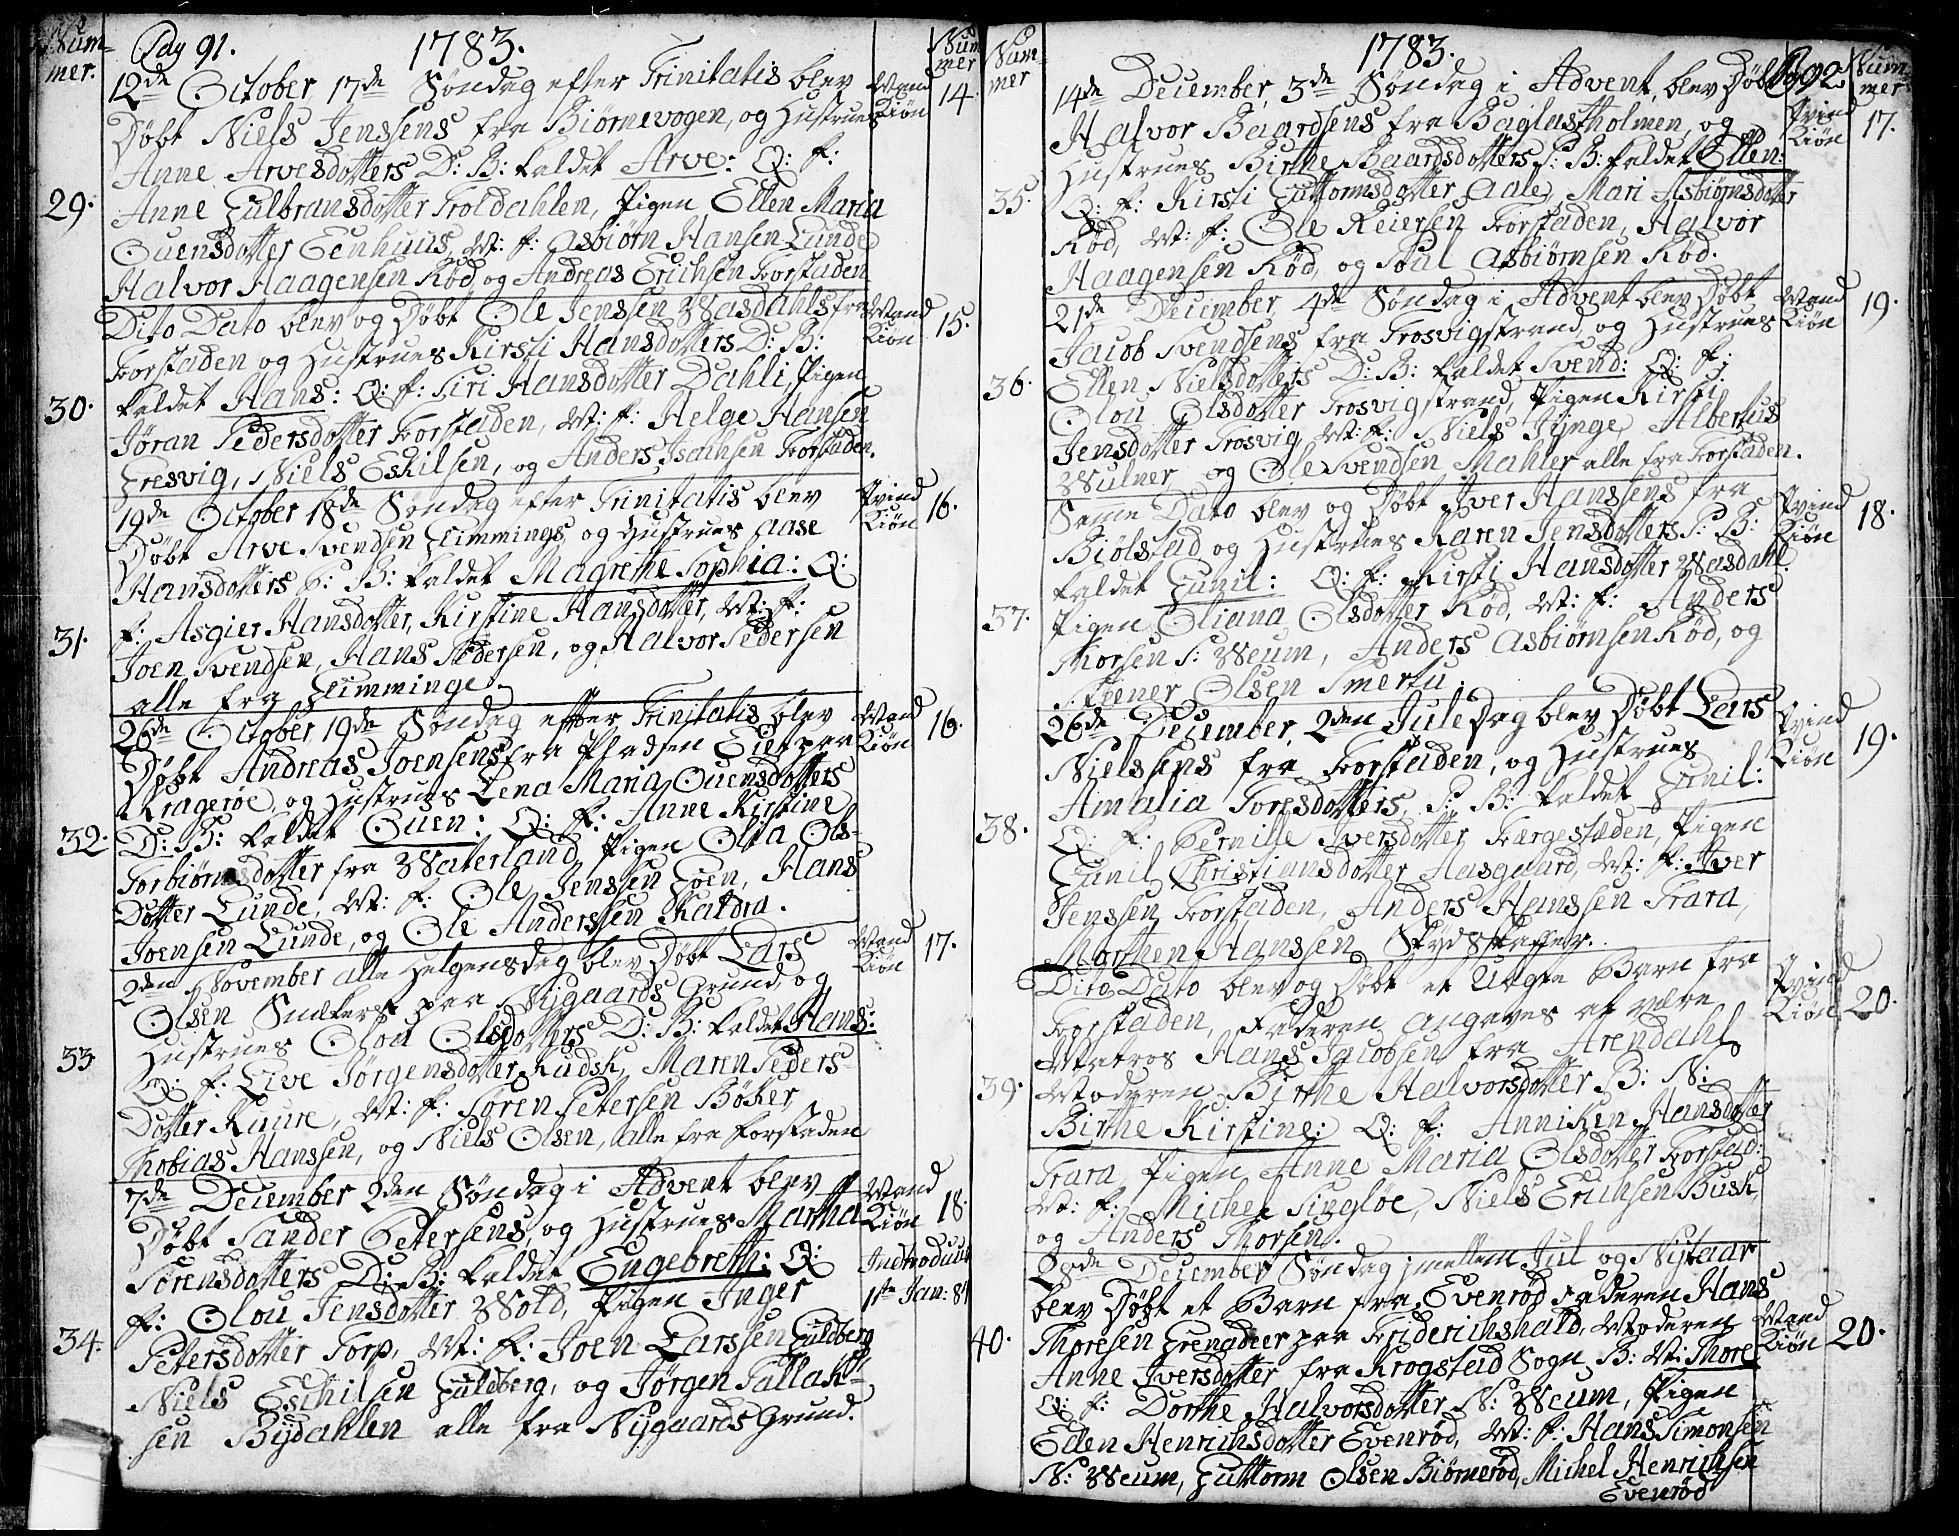 Num-
mer.
Pag 91.
1783.
Num
mer
12de October 17de Søndag efter Trinitatis blev
Døbt Niels Jenssens fra Biørnevogen, og Hustrues
Anne Arvesdotters D: B: kaldet Arve: Q: f:
29. Anne Gulbransdotter Troldahlen, Pigen Ellen Maria
Ouensdotter Eenhuus, M: f: Asbiørn Hansen Lunde
Halvor Haagensen Rød og Andreas Erichsen Forstaden
Mand
Kiøn 14.
Dito Dato blev og Døbt Ole Jenssen Wasdahls fra
Forstaden og Hustrues Kirsti Hansdotters D: B:
30. kaldet Hans: Q: f: Siri Hansdotter Dahli, Pigen
Jøran Pedersdotter Forstaden, M: f: Helge Hansen
Gresvig, Niels Eskilsen, og Anders Isachsen Forstaden.
Mand
Kiøn 15.
19de October 18de Søndag efter Trinitatis blev
Døbt Arve Svendsen Glimmings og Hustrues Aase
Hansdotters P: B: kaldet Magrethe Sophia: Q:
31. f: Asgier Hansdotter, Kirstine Hansdotter, M: f:
Joen Svendsen, Hans Pedersen, og Halvor Pedersen
alle fra Glimminge.
Qvind
Kiøn 16.
26de October 19de Søndag efter Trinitatis blev
Døbt Andreas Joensens fra Pladsen Eiet paa
Kragerøe, og Hustrues Lena Maria Ouensdotters
32. D: B: kaldet Ouen: Q: f: Anne Kirstine
Torbiørnsdotter fra Waterland, Pigen Olia Ols-
Dotter Lunde, M: f: Ole Jenssen Goen, Hans
Joensen Lunde, og Ole Anderssen Skatdra.
Mand
Kiøn 16.
2den November Alle Helgensdag blev Døbt Lars
Olsen Snekers paa Nygaards Grund, og
Hustrues Olou Olsdotters D: B: kaldet Hans:
33 Q: f: Live Jørgensdotter Rudsk, Maren Peders-
Dotter Ruure, M: f: Søren Petersen Bøker,
Thobias Hanssen, og Niels Olsen, alle fra Forstaden
Mand
Kiøn 17.
7de December 2den Søndag i Advent blev
Døbt Sander Petersens, og Hustrues Martha
Sørensdotters D: B: kaldet Engebreth: Q:
f: Olou Jensdotter Wold, Pigen Inger
34. Petersdotter Torp, M: f: Joen Larssen Guldberg
Niels Eschilsen Guldberg, og Jørgen Pallak-
sen Bydahlen alle fra Nygaards Grund.
Mand
Kiøn 18
Indtroduut
1ste Jan: 84
Num-
mer
1783.
Pag 92.
Num-
mer
14de December, 3de Søndag i Advent, blev Døbt
Halvor Baardsens fra Baglastholmen, og
Hustrues Birthe Baardsdotters P: B: kaldet Ellen:
35. Q: f: Kirsti Guttormsdotter Aale, Mari Asbiørnsdotter
Rød, M: f: Ole Reiersen Forstaden, Halvor
Haagensen Rød, og Poul Asbiørnsen Rød.
Qvind
Kiøn 17.
21de December, 4de Søndag i Advent blev Døbt
Jacob Svendsens fra Trosvigstrand, og Hustrues
36. Ellen Nielsdotters D: B: kaldet Svend: Q: f:
Olou Olsdotter Trosvigstrand, Pigen Kirsti
Jensdotter Trosvig, M: f: Niels Jynge, Albertus
Wulner og Ole Svendsen Mahler alle fra Forstaden.
Mand
Kiøn 19.
Samme Dato blev og Døbt Iver Hanssens fra
Biølstad og Hustrues Karen Jensdotters P: B:
kaldet Gunil: Q: f: Kirsti Hansdotter Wasdahl
37. Pigen Oliana Olsdotter Rød, M: f: Anders
Thorsen S: Weum, Anders Asbiørnsen Rød, og
Stener Olsen Smertu.
Qvind
Kiøn 18.
26de December, 2den Jule Dag blev Døbt Lars
Nielssens fra Forstaden, og Hustrues
Amalia Toresdotters, P: B: kaldet Gunil:
38. Q: f: Pernille Iversdotter Færgestæden, Pigen
Gunil Christiansdotter Aasgaard, M: f: Iver
Jenssen Forstaden, Anders Hanssen Trara,
Morthen Hanssen Skydskaffer.
Qvind
Kiøn 19.
Dito Dato blev og Døbt et Uægte Barn fra
Forstaden, Faderen angaves at være
Matros Hans Jacobsen fra Arendahl
39. Moderen Birthe Halvorsdotter B: N:
Birthe Kirstine: Q: f: Anniken Hansdotter
Trara, Pigen Anne Maria Olsdotter Forstad:
M: f: Michel Singløe, Niels Erichsen Busk,
og Anders Thorsen.
Qvind
Kiøn 20.
28de December Søndag imellem Jul og Nytaar
blev Døbt et Barn fra Evenrød Faderen Hans
40. Thoresen Grenadeer paa Friderichshald, Moderen
Anne Iversdotter fra Krogstad Sogn B: N: Thore
Q: f: Dorthe Halvorsdotter N: Weum, Pigen
Ellen Henrichsdotter Evenrød, M: f: Hans Simonsen
N: Weum, Guttorm Olsen Biørnerød, Michel Henrichsen
Evenrød
Mand
Kiøn 20.